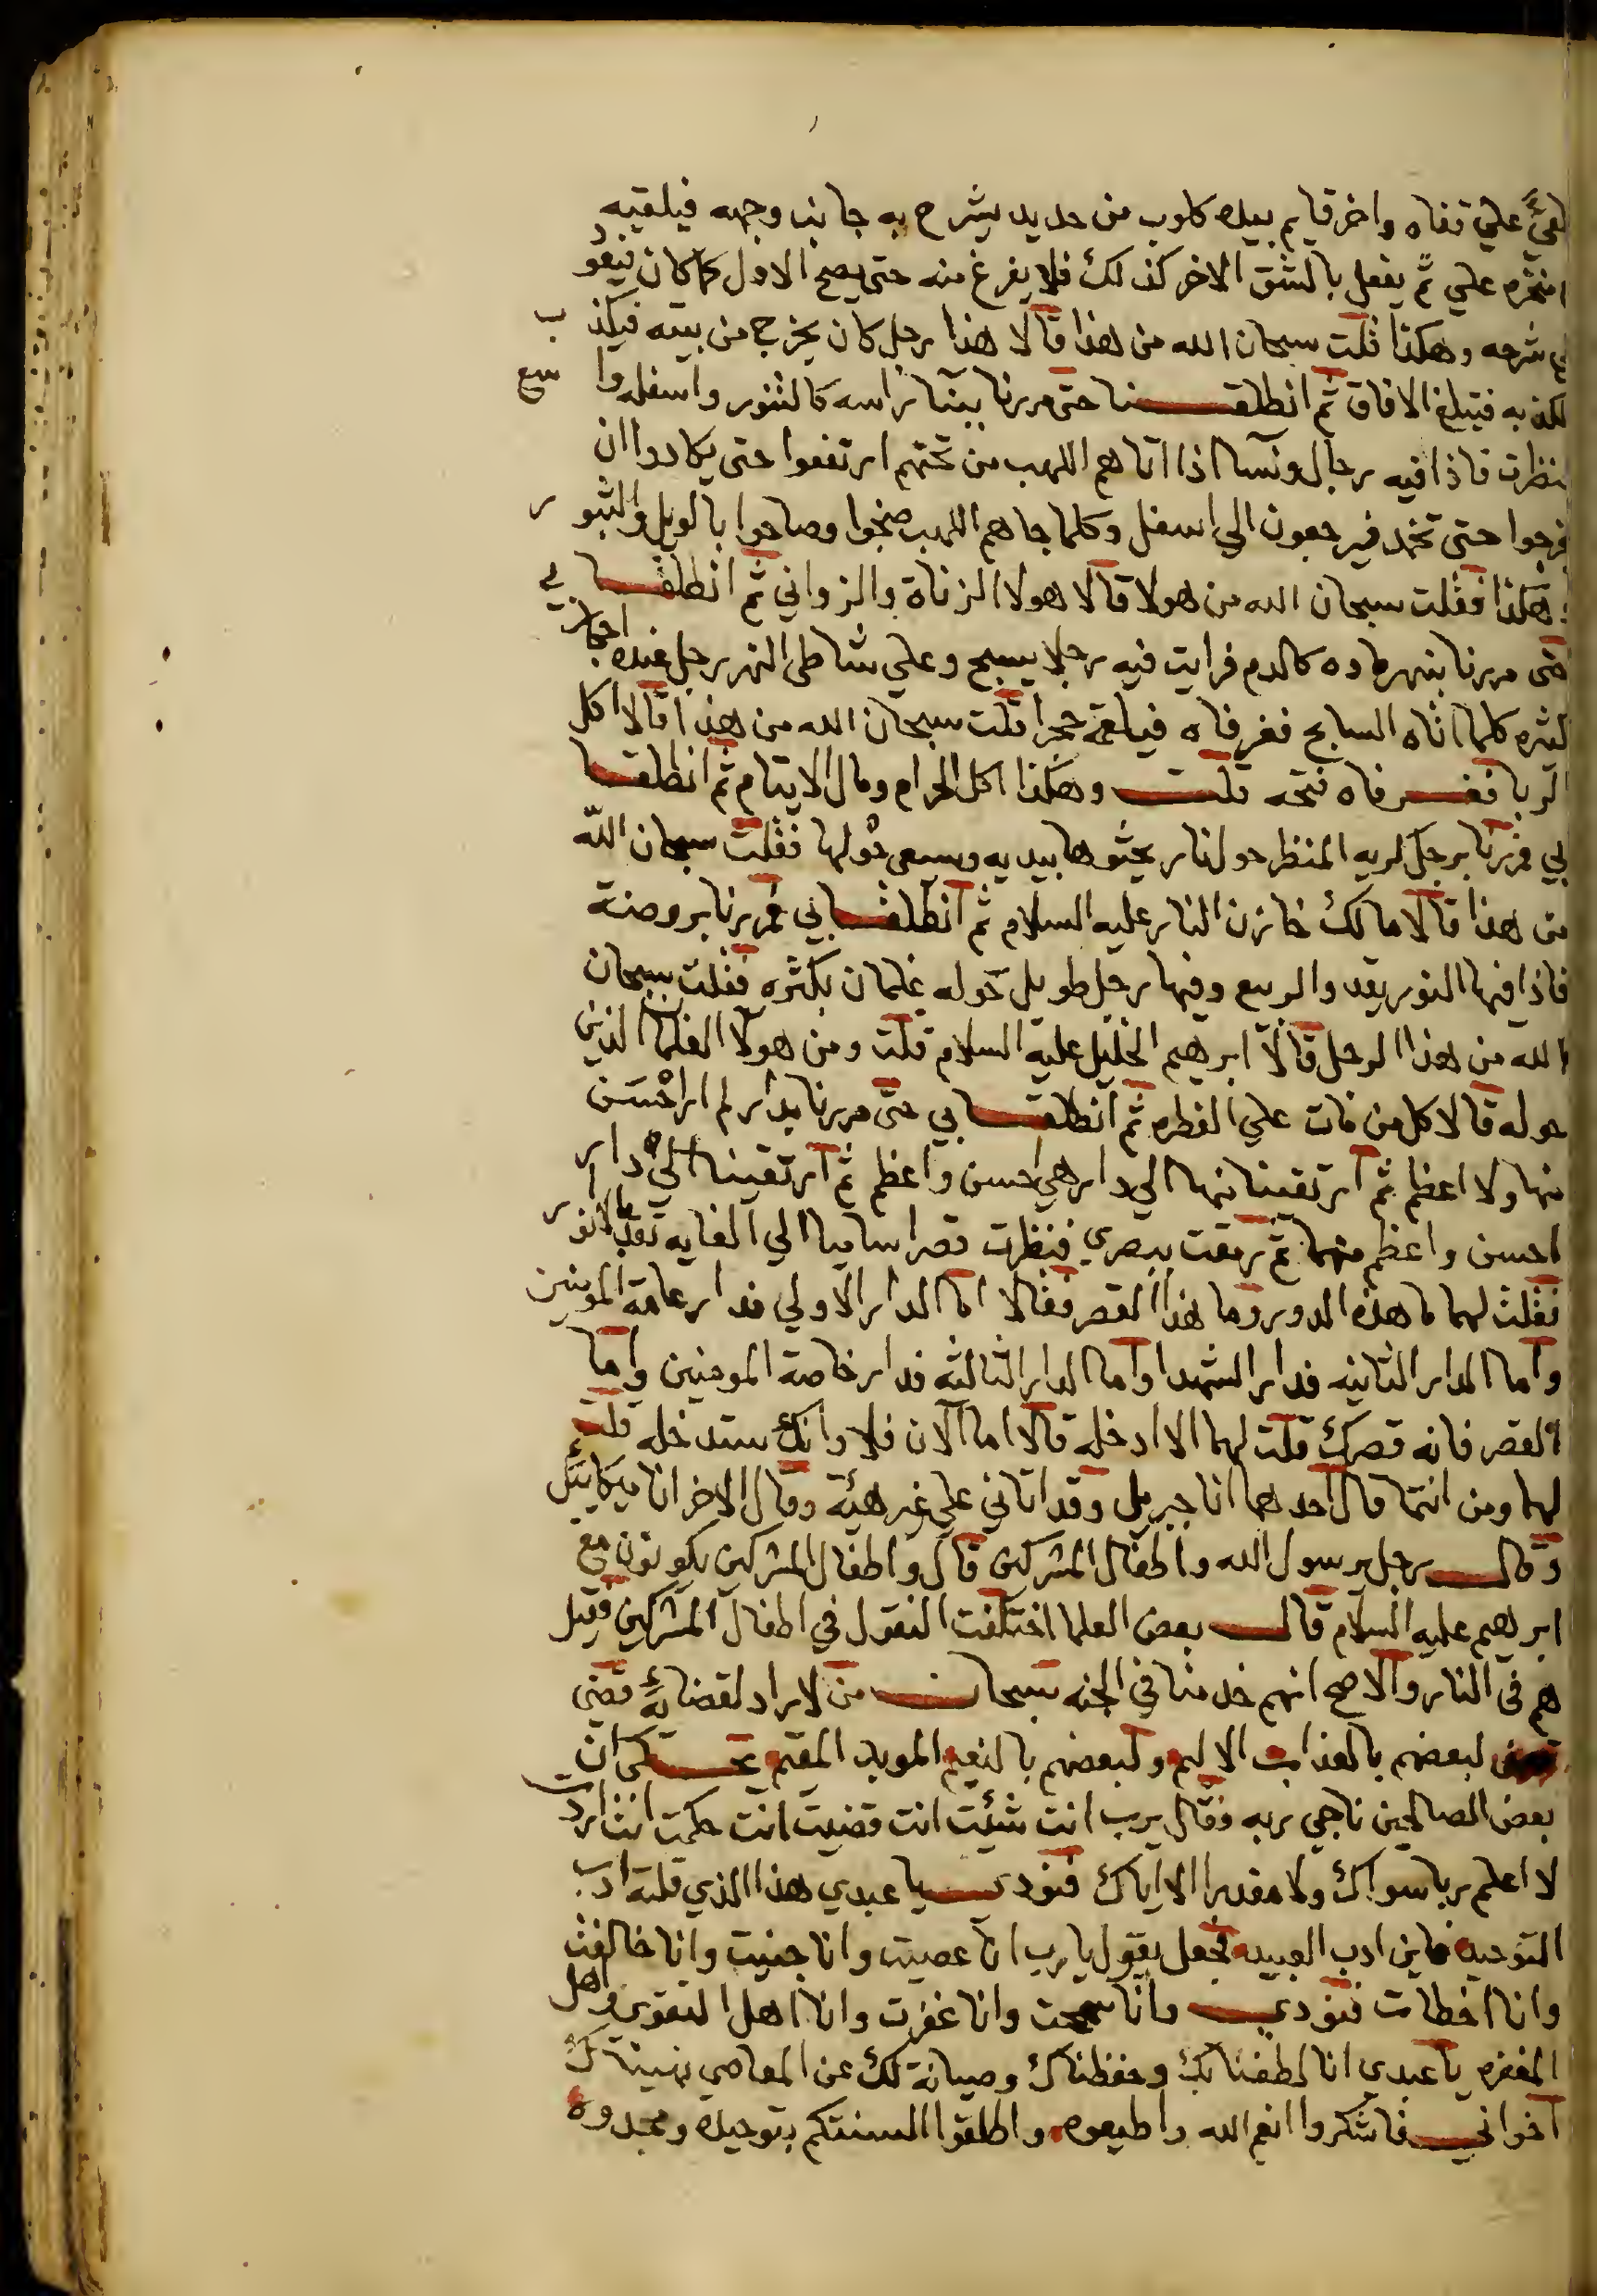 علي قفاه واخر قايم بيده كلوب من حديد يشرح به جانب وجهه فيلقيه
ثم يفعل بالشق الاخر كذلك فلا يفرغ منه حتى يصح الاول كما كان فيعو
شرحه وهكذا قلت سبحان الله من هذا قالا هذا رجل كان يخرج من بيته فيكذب
لكذبه فتبلغ الافاق ثم انطلقنا حتى مررنا ببيتا راسه كالتنور واسفله واسع
فنظرت فاذا فيه رجال ونسآ اذا اتاهم اللهب من تحتهم ارتفعوا حتى يكادوا ان
يخرجوا حتى تخمد فيرجعون الي اسفل وكلما جاهم اللهب ضجوا وصاحوا بالويل والثبور
هكذا فقلت سبحان الله من هولا قالا هولا الزناة والزواني ثم انطلقا بي
حتى مررنا بنهر ماوه كالدم فرايت فيه رجلا يسبح وعلي شاطى النهر رجل عنده احجار
كثيره كلما اتاه السابح فغر فاه فيلقمه حجرا قلت سبحان الله من هذا قالا اكل
الربا فغر فاه فتحه قلت وهكذا اكل الحرام ومال الايتام ثم انطلقا
بي فمررنا برجل كريه المنظر حوله نار يحثوها بيديه ويسعى حولها فقلت سبحان الله
من هذا قالا مالك خازن النار عليه السلام ثم انطلقا بي فمررنا بروضة
فاذا فيها النور يقد والربيع وفيها رجل طويل حوله غلمان بكثره فقلت سبحان
الله من هذا الرجل قالا ابرهيم الخليل عليه السلام قلت ومن هولا الغلمان الذين
حوله قالا كل من مات علي الفطره ثم انطلقا بي حتى مررنا بدار لم ار احسن
منها ولا اعظم ثم ارتقينا منها الي دار هي احسن واعظم ثم ارتقينا الي دار
احسن واعظم منهما ثم رمقت ببصري فنظرت قصرا ساميا الي الغايه يقد بالانور
فقلت لهما ما هذه الدور وما هذا القصر فقالا اما الدار الاولي فدار عامة المومنين
واما الدار الثانيه فدار الشهدا واما الدار الثالثه فدار خاصة المومنين واما
القصر فانه قصرك قلت لهما الا ادخله قالا اما الان فلا وانك ستدخله قلت
لهما ومن انتما قال احدهما انا جبريل وقد اتاني علي غير هيئة وقال الاخر انا ميكايئل
وقال رجل يرسول الله واطفال المشركين قال واطفال المشركين يكونون مع
ابرهيم عليه السلام قال بعض العلما اختلفت النقول في اطفال المشركين فقيل
هم في النار والاصح انهم خدمنا في الجنه سبحان من لا راد لقضائه قضى
لبعضهم بالعذاب الاليم ولبعضهم بالنعيم الموبد المقيم يحكى ان
بعض الصالحين ناجي ربه وقال يرب انت شئت انت قضيت انت حكمت انت اردت
لا اعلم ربا سواك ولا مقدرا الا اياك فنودي يا عبدي هذا الذي قلته ادب
التوحيد فاين ادب العبيد فجعل يقول يا رب انا عصيت وانا جنيت وانا خالفت
وانا اخطات فنودي وانا سمحت وانا غفرت وانا اهل التقوى واهل
المغفره يا عبدي انا لطفنا بك وحفظناك وصيانة لك عن المعاصي نهيناك
اخواني فاشكروا انعم الله واطيعوه واطلقوا السنتكم بتوحيده ومجدوه